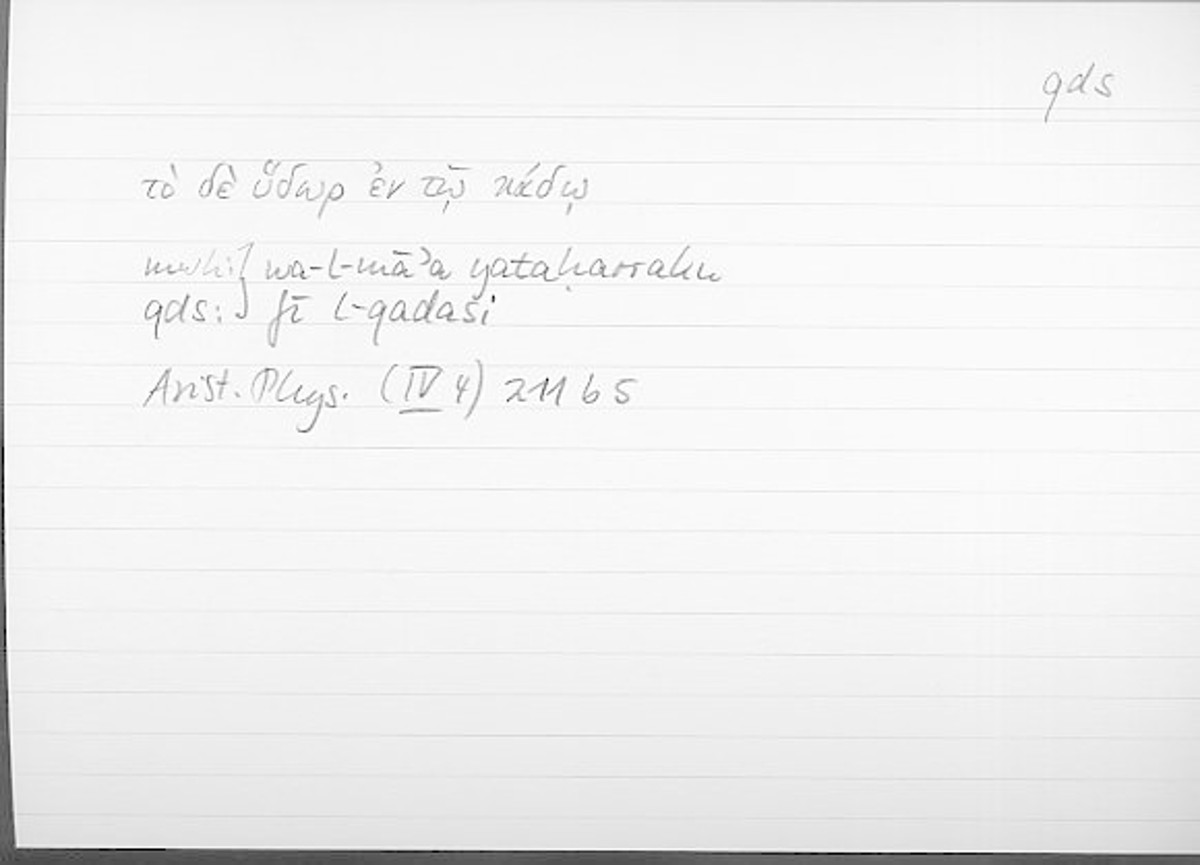 qds
τὸ δὲ ὕδωρ ἐν τῷ κάδῳ
wa-l-māʾa yataḥarraku
qds: fī l-qadasi
Arist. Phys. (IV 4) 211 b 5